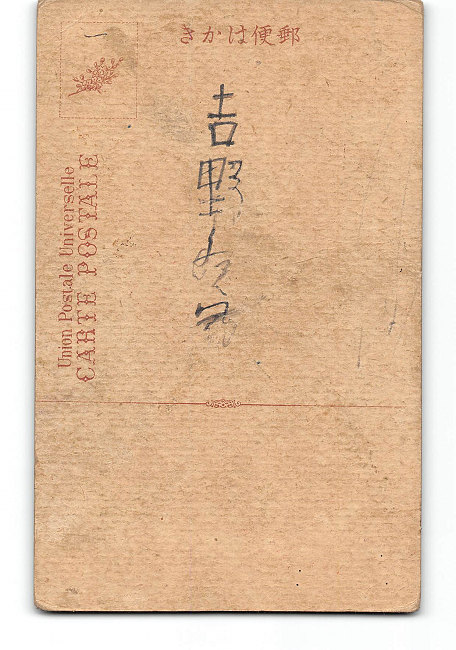 きかは便郵
Union Postale Universelle
CARTE POSTALE
吉野